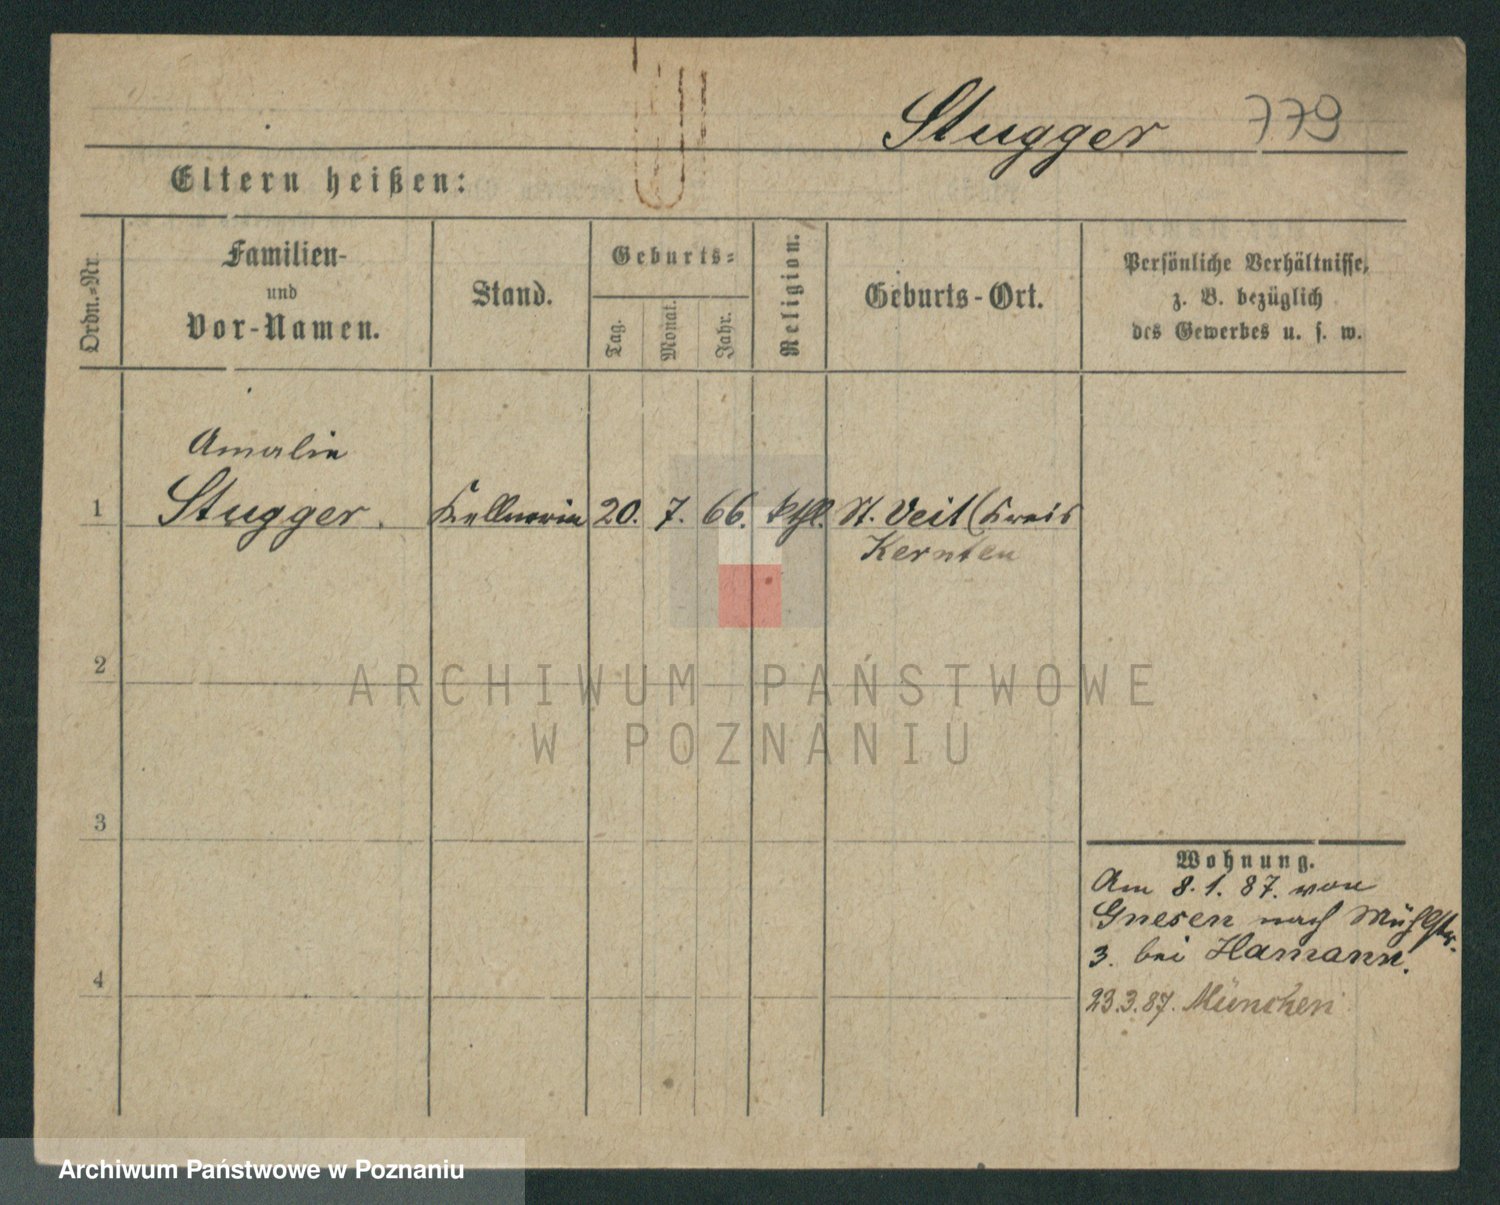 Stugger 779
Eltern heißen:
Ordn.=Nr.
Familien-
und
Vor-Namen.
Stand.
Geburts=
Tag.
Monat.
Jahr.
Religion.
Geburts-Ort.
Persönliche Verhältnisse,
z. B. bezüglich
des Gewerbes u. s. w.
Amalie
1 Stugger. Kellnerin 20. 7. 66. kthl. St. Veit (Kreis
Kernten
2
ARCHIWUM PAŃSTWOWE
W POZNANIU
3
Wohnung.
Am 8. 1. 87. von
Gnesen nach Mühlstr.
3. bei Hamann.
4
23.3.87. München
Archiwum Państwowe w Poznaniu